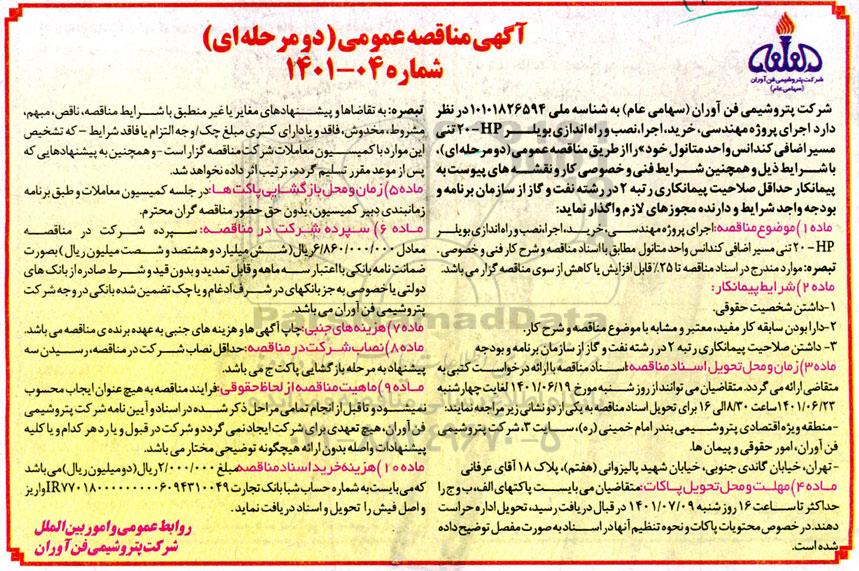 آگهی مناقصه عمومی (دو مرحله‌ای)
شماره ۰۴-۱۴۰۱
شرکت پتروشیمی فن آوران
(سهامی عام)
شرکت پتروشیمی فن آوران (سهامی عام) به شناسه ملی ۱۰۱۰۱۸۲۶۵۹۴ در نظر
دارد اجرای پروژه مهندسی، خرید، اجرا، نصب و راه اندازی بویلـــر HP-۲۰ تنی
مسیر اضافی کندانس واحد متانول خود» را از طریق مناقصه عمومی (دو مرحله ای)،
با شرایط ذیل و همچنین شرایط فنی و خصوصی کار و نقشه های پیوست به
پیمانکار حداقل صلاحیت پیمانکاری رتبه ۲ در رشته نفت و گاز از سازمان برنامه و
بودجه واجد شرایط و دارنده مجوزهای لازم واگذار نماید:
ماده ۱) موضوع مناقصه: اجرای پروژه مهندســی، خریــد، اجرا، نصب و راه اندازی بویلــر
HP-۲۰ تنی مسیر اضافی کندانس واحد متانول مطابق با اسناد مناقصه و شرح کار فنی و خصوصی.
تبصره: موارد مندرج در اسناد مناقصه تا ۲۵٪ قابل افزایش یا کاهش از سوی مناقصه گزار می باشد.
ماده ۲) شرایط پیمانکار:
۱-داشتن شخصیت حقوقی.
۲-دارا بودن سابقه کار مفید، معتبر و مشابه با موضوع مناقصه و شرح کار.
۳- داشتن صلاحیت پیمانکاری رتبه ۲ در رشته نفت و گاز از سازمان برنامه و بودجه
ماده ۳) زمان و محل تحویل اسناد مناقصه: اسناد مناقصه با ارائه درخواست کتبی به
متقاضی ارائه می گردد. متقاضیان می توانند از روز شنبه مورخ ۱۴۰۱/۰۶/۱۹ لغایت چهارشنبه
۱۴۰۱/۰۶/۲۳ ساعت ۸/۳۰ الی ۱۶ برای تحویل اسناد مناقصه به یکی از دو نشانی زیر مراجعه نمایند:
-منطقه ویژه اقتصادی پتروشیمی بندر امام خمینی (ره)، سایت ۳، شرکت پتروشیمی
فن آوران، امور حقوقی و پیمان ها.
- تهران، خیابان گاندی جنوبی، خیابان شهید پالیزوانی (هفتم)، پلاک ۱۸ آقای عرفانی
ماده ۴) مهلت و محل تحویل پاکات: متقاضیان می بایست پاکتهای الف، ب و ج را
حداکثر تا ساعت ۱۶ روز شنبه ۱۴۰۱/۰۷/۰۹ در قبال دریافت رسید، تحویل اداره حراست
دهند. در خصوص محتویات پاکات و نحوه تنظیم آنها در اسناد به صورت مفصل توضیح داده
شده است.
تبصره: به تقاضاها و پیشنهادهای مغایر یا غیر منطبق با شرایط مناقصه، ناقص، مبهم،
مشروط، مخدوش، فاقد و یا دارای کسری مبلغ چک/وجه التزام یا فاقد شرایط - که تشخیص
این موارد با کمیسیون معاملات شرکت مناقصه گزار است - و همچنین به پیشنهادهایی که
پس از موعد مقرر تسلیم گردد، ترتیب اثر داده نخواهد شد.
ماده ۵) زمان و محل بازگشایی پاکت ها: در جلسه کمیسیون معاملات و طبق برنامه
زمانبندی دبیر کمیسیون، بدون حق حضور مناقصه گران محترم.
ماده ۶) سپرده شرکت در مناقصه: سپرده شرکت در مناقصه
معادل ۶/۸۶۰/۰۰۰/۰۰۰ ریال (شش میلیارد و هشتصد و شصت میلیون ریال) بصورت
ضمانت نامه بانکی با اعتبار سه ماهه و قابل تمدید و بدون قید و شرط صادره از بانک های
دولتی یا خصوصی به جز بانکهای در شرف ادغام و یا چک تضمین شده بانکی در وجه شرکت
پتروشیمی فن آوران می باشد.
ماده ۷) هزینه های جنبی: چاپ آگهی ها و هزینه های جنبی به عهده برنده ی مناقصه می باشد.
ماده ۸) نصاب شرکت در مناقصه: حداقل نصاب شرکت در مناقصه، رسیدن سه
پیشنهاد به مرحله بازگشایی پاکت ج می باشد.
ماده ۹) ماهیت مناقصه از لحاظ حقوقی: فرایند مناقصه به هیچ عنوان ایجاب محسوب
نمیشود و تا قبل از انجام تمامی مراحل ذکر شده در اسناد و آیین نامه شرکت پتروشیمی
فن آوران، هیچ تعهدی برای شرکت ایجاد نمی گردد و شرکت در قبول و یا رد هر کدام و یا کلیه
پیشنهادات واصله بدون ارائه هیچگونه توضیحی مختار می باشد.
ماده ۱۰) هزینه خرید اسناد مناقصه: مبلغ ۲/۰۰۰/۰۰۰ ریال (دو میلیون ریال) می باشد
که می بایست به شماره حساب شبا بانک تجارت واریز
و اصل فیش را تحویل و اسناد دریافت نماید.
روابط عمومی و امور بین الملل
شرکت پتروشیمی فن آوران